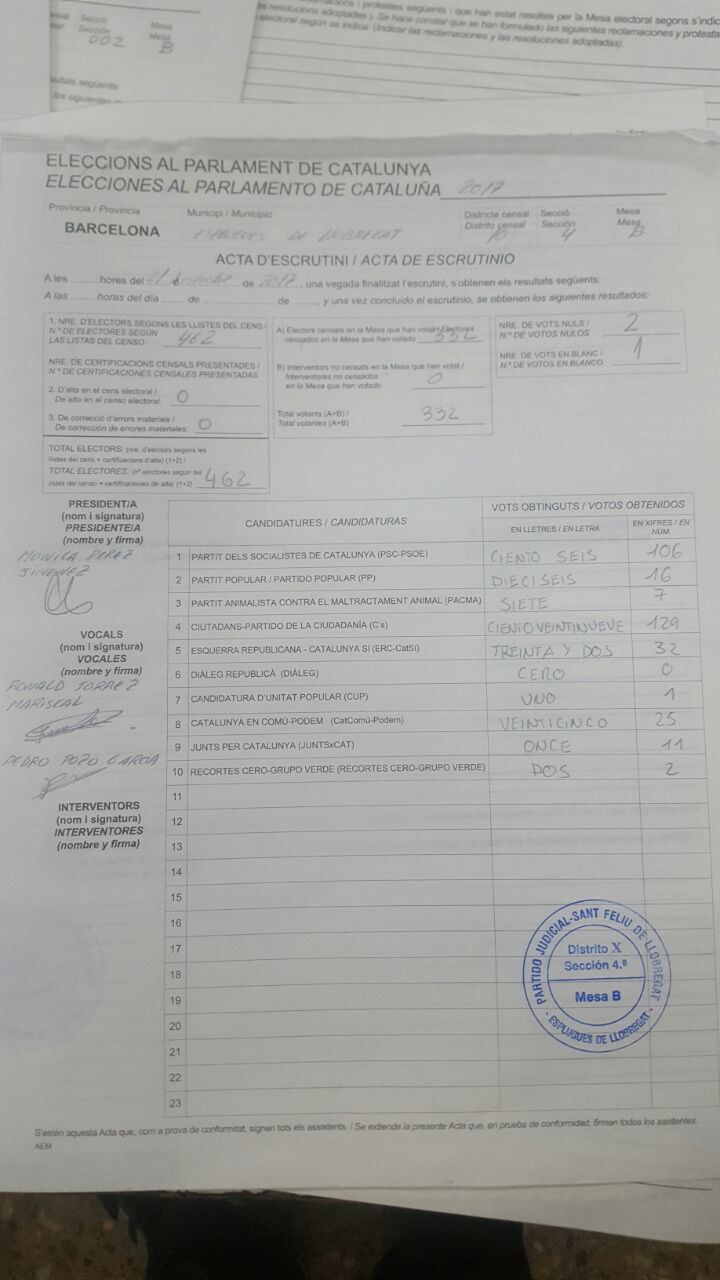 Secció
Sección
002
Mesa
Mesa
B
resolucions adoptades). Se hace constar que se han formulado las siguientes reclamaciones y protesta
electoral según se indica (indicar las reclamaciones y las resoluciones adoptadas).
ELECCIONS AL PARLAMENT DE CATALUNYA
ELECCIONES AL PARLAMENTO DE CATALUÑA 2017
Província / Provincia
BARCELONA
Municipi / Municipio
ESPLUGUES DE LLOBREGAT
Districte censal
Distrito censal
10
Secció
Sección
4
Mesa
Mesa
B
ACTA D'ESCRUTINI / ACTA DE ESCRUTINIO
A les ..........hores del 21 desembre de 2017, una vegada finalitzat l'escrutini, s'obtenen els resultats següents:
A las ..........horas del día ........ de .................... de ........ y una vez concluido el escrutinio, se obtienen los siguientes resultados:
1. NRE. D'ELECTORS SEGONS LES LLISTES DEL CENS /
N.º DE ELECTORES SEGÚN
LAS LISTAS DEL CENSO 462
NRE. DE CERTIFICACIONS CENSALS PRESENTADES /
N.º DE CERTIFICACIONES CENSALES PRESENTADAS
2. D'alta en el cens electoral /
De alta en el censo electoral: 0
3. De correcció d'errors materials /
De corrección de errores materiales: 0
TOTAL ELECTORS: (nre. d'electors segons les
llistes del cens + certificacions d'alta) (1+2) /
TOTAL ELECTORES: (nº electores según las
listas del censo + certificaciones de alta) (1+2) 462
A) Electors censats en la Mesa que han votat / Electores
censados en la Mesa que han votado 332
B) Interventors no censats en la Mesa que han votat /
Interventores no censados
en la Mesa que han votado 0
Total votants (A+B) /
Total votantes (A+B) 332
NRE. DE VOTS NULS /
N.º DE VOTOS NULOS 2
NRE. DE VOTS EN BLANC /
N.º DE VOTOS EN BLANCO 1
PRESIDENT/A
(nom i signatura)
PRESIDENTE/A
(nombre y firma)
MONICA PEREZ
JIMENEZ
VOCALS
(nom i signatura)
VOCALES
(nombre y firma)
RONALD TORREZ
MARISCAL
PEDRO POZO GARCIA
INTERVENTORS
(nom i signatura)
INTERVENTORES
(nombre y firma)
CANDIDATURES / CANDIDATURAS
VOTS OBTINGUTS / VOTOS OBTENIDOS
EN LLETRES / EN LETRA
EN XIFRES / EN NÚM.
1 PARTIT DELS SOCIALISTES DE CATALUNYA (PSC-PSOE) CIENTO SEIS 106
2 PARTIT POPULAR / PARTIDO POPULAR (PP) DIECISEIS 16
3 PARTIT ANIMALISTA CONTRA EL MALTRACTAMENT ANIMAL (PACMA) SIETE 7
4 CIUTADANS-PARTIDO DE LA CIUDADANÍA (C's) CIENTO VEINTINUEVE 129
5 ESQUERRA REPUBLICANA - CATALUNYA SÍ (ERC-CatSí) TREINTA Y DOS 32
6 DIÀLEG REPUBLICÀ (DIÀLEG) CERO 0
7 CANDIDATURA D'UNITAT POPULAR (CUP) UNO 1
8 CATALUNYA EN COMÚ-PODEM (CatComú-Podem) VEINTICINCO 25
9 JUNTS PER CATALUNYA (JUNTSxCAT) ONCE 11
10 RECORTES CERO-GRUPO VERDE (RECORTES CERO-GRUPO VERDE) DOS 2
11
12
13
14
15
16
17
18
19
20
21
22
23
PARTIDO JUDICIAL-SANT FELIU DE LLOBREGAT
Distrito X
Sección 4.ª
Mesa B
- ESPLUGUES DE LLOBREGAT -
S'estén aquesta Acta que, com a prova de conformitat, signen tots els assistents. / Se extiende la presente Acta que, en prueba de conformidad, firman todos los asistentes.
AEM